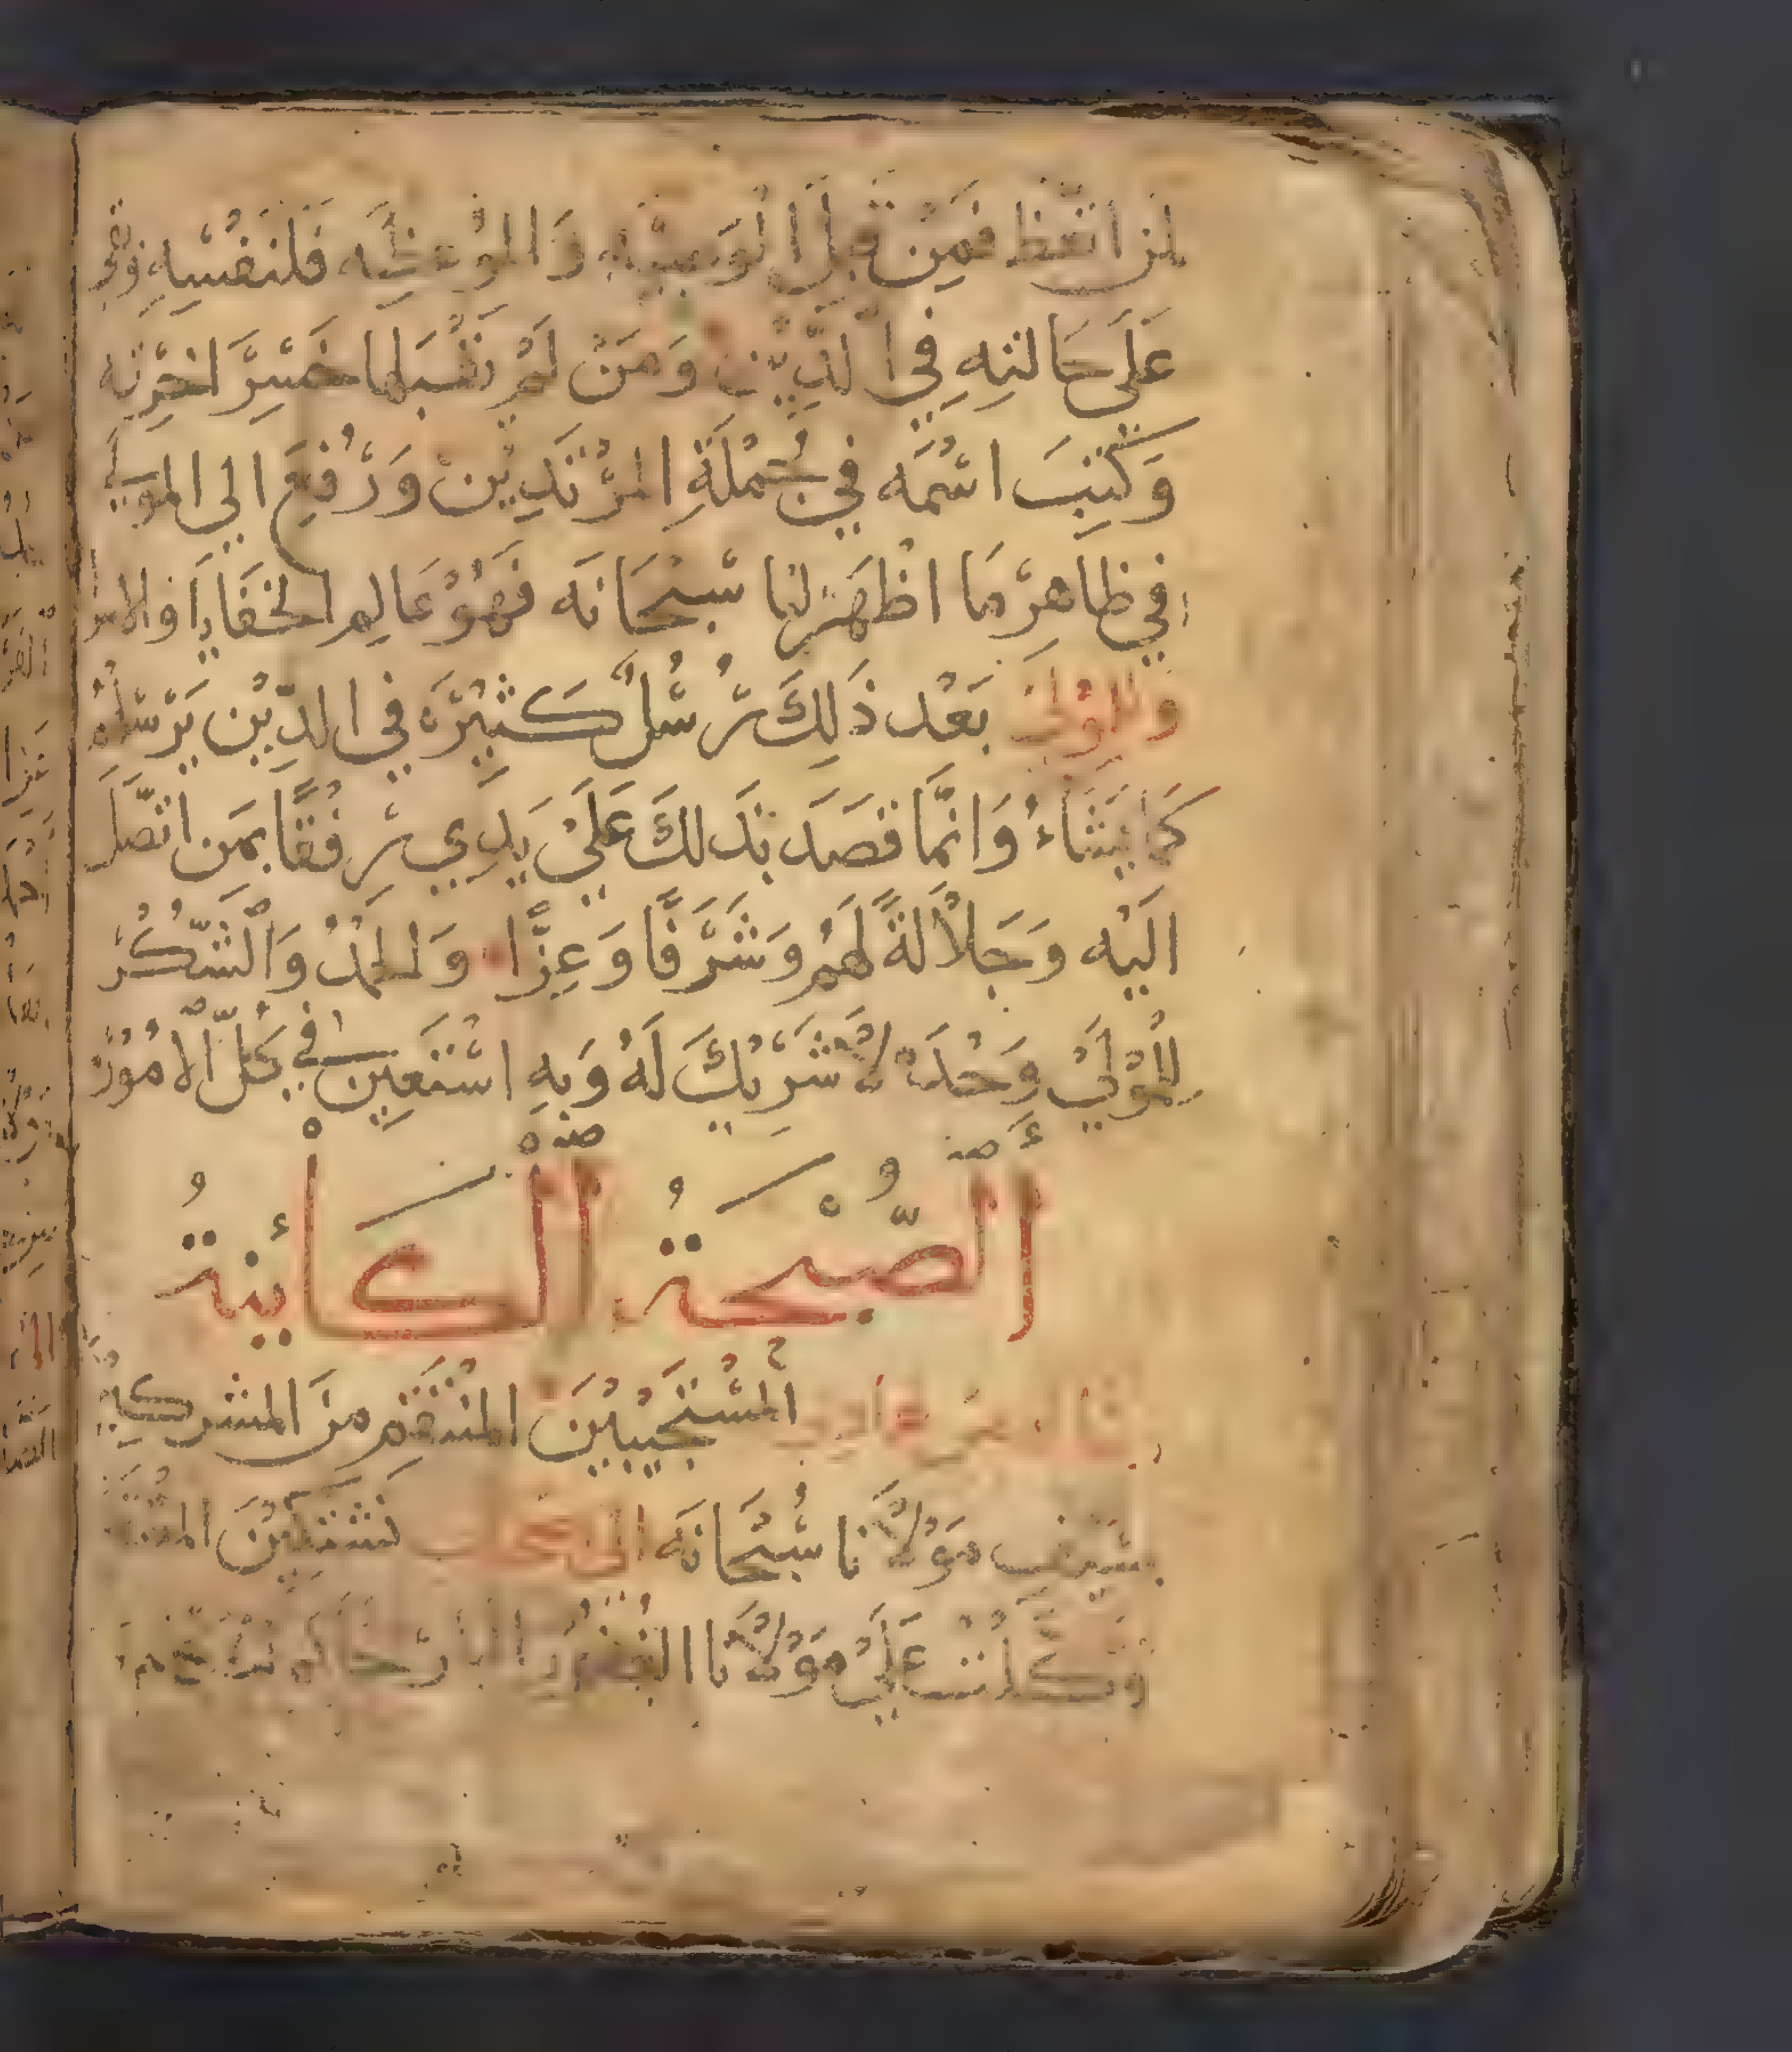 لمن اتعظ فمن قبل الوصية والموعظه فلنفسه
عَلَي حَالتِهِ فِي الدِّيْن وَمَنْ لَمْ يَقْبَلها خَسِرَ اخِرَته
وَكُتِبَ اسْمُه فِي جُمْلَةِ المُرْتَدِيْن وَرُفِعَ الي المَوْلَي
فِي ظاهِرْ مَا اظْهَرَ لنا سُبْحَانَه فَهُوْ عَالِم الخَفَايَا والامر
وللمَوْلَي بَعْد ذَلِكَ رُسُلٌ كَثِيْرَه فِي الدِّيْن يَرْسلهُم
كَمَا يَشَاءُ وَانَّمَا قصَدَ بذَلكَ عَلَيْ يَدِي رِفْقًا بمَن اتصَّلَ
الَيْه وَجَلاْلَةً لَهُم وَشَرَفًا وَعِزًّا وَالحَمْدُ وَالشُّكْر
لِلمَوْلَيْ وَحْدَهْ لاْ شَرِيْكَ لَهُ وَبِهِ اسْتَعِين فِي كُلّ الاُمُوْر
الصَّيْحَةُ الْكَائِنةُ
المُسْتَجِيْبِيْنَ المُنْتَقِم منَ المشركين
بسَيْف مَوْلاْنا سُبْحَانَه
تَوَكَّلْتُ عَلَيْ مَوْلاْنَا البار